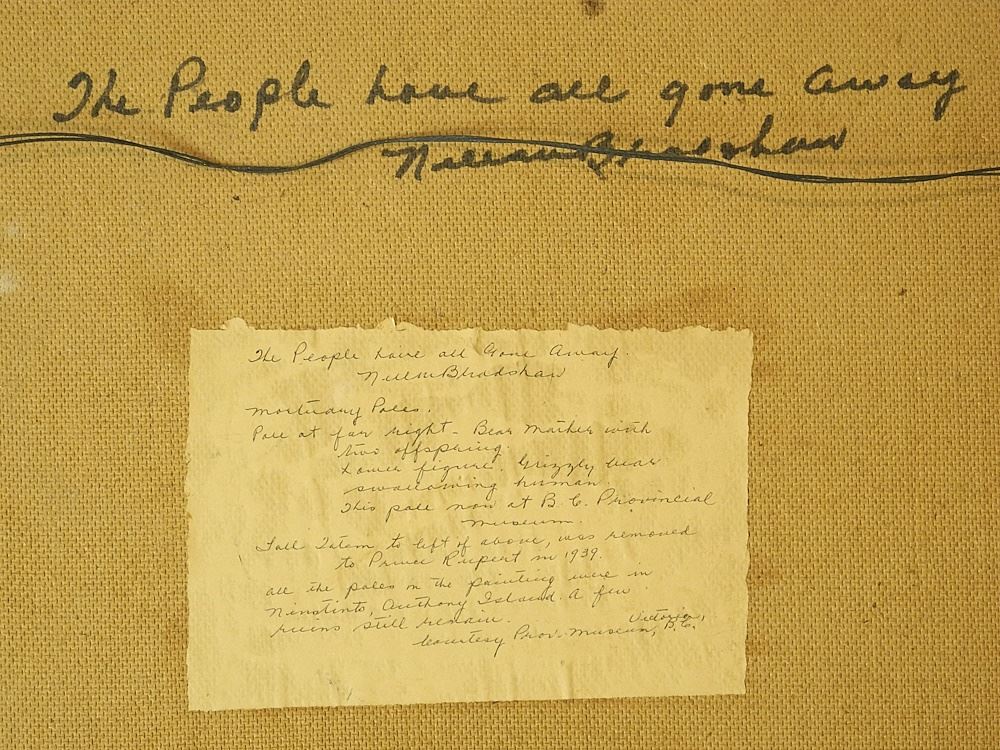 The People have all gone away
Nell M Bradshaw
The People have all Gone Away.
Nell M Bradshaw
Mortuary Poles.
Pole at far right - Bear Mother with
two offspring
Lower figure. Grizzly bear
swallowing human.
This pole now at B.C. Provincial
museum.
Tall Totem to left of above, was removed
to Prince Rupert in 1939.
all the poles in the painting were in
Ninstints, Anthony Island. A few
ruins still remain.
Courtesy Prov. Museum, Victoria, B.C.